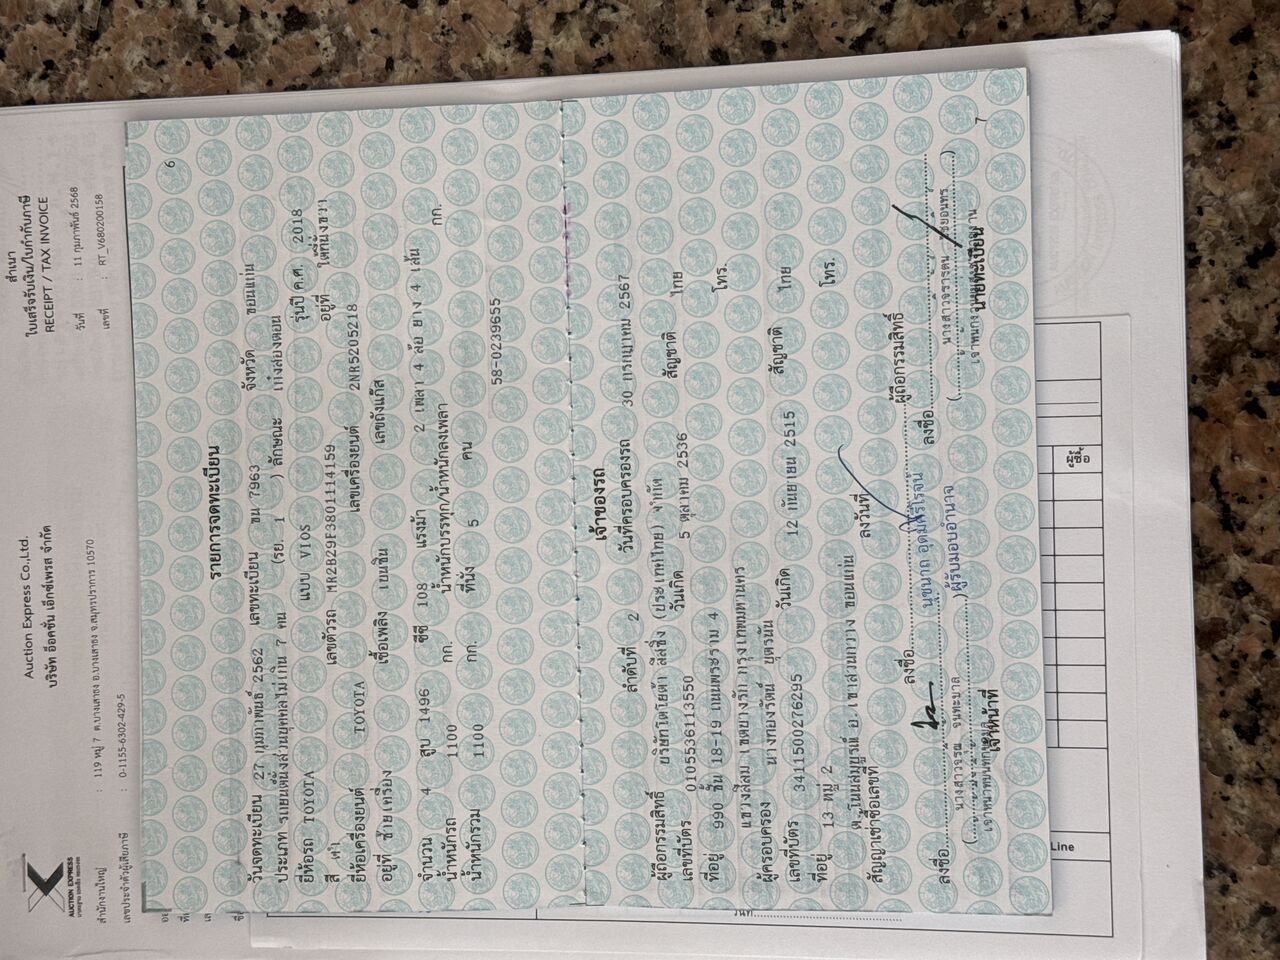 AUCTION EXPRESS
Auction Express Co.,Ltd.
บริษัท อ๊อคชั่น เอ็กซ์เพรส จำกัด
สำเนา
ใบเสร็จรับเงิน/ใบกำกับภาษี
RECEIPT / TAX INVOICE
สำนักงานใหญ่ : 119 หมู่ 7 ต.บางเสาธง อ.บางเสาธง จ.สมุทรปราการ 10570
วันที่ : 11 กุมภาพันธ์ 2568
เลขประจำตัวผู้เสียภาษี : 0-1155-6302-429-5
เลขที่ : RT_V680200158
6
รายการจดทะเบียน
วันจดทะเบียน 27 กุมภาพันธ์ 2562 เลขทะเบียน ขน 7963 จังหวัด ขอนแก่น
ประเภท รถยนต์นั่งส่วนบุคคลไม่เกิน 7 คน (รย. 1 ) ลักษณะ เก๋งสองตอน
ยี่ห้อรถ TOYOTA แบบ VIOS รุ่นปี ค.ศ. 2018
สี เทา เลขตัวรถ MR2B29F3801114159 อยู่ที่ ใต้ที่นั่งขวา
ยี่ห้อเครื่องยนต์ TOYOTA เลขเครื่องยนต์ 2NR5205218
อยู่ที่ ซ้ายเครื่อง เชื้อเพลิง เบนซิน เลขถังแก๊ส
จำนวน 4 สูบ 1496 ซีซี 108 แรงม้า 2 เพลา 4 ล้อ ยาง 4 เส้น
น้ำหนักรถ 1100 กก. น้ำหนักบรรทุก/น้ำหนักลงเพลา กก.
น้ำหนักรวม 1100 กก. ที่นั่ง 5 คน
58-0239655
เจ้าของรถ
ลำดับที่ 2 วันที่ครอบครองรถ 30 กรกฎาคม 2567
ผู้ถือกรรมสิทธิ์ บริษัทโตโยต้า ลีสซิ่ง (ประเทศไทย) จำกัด
เลขที่บัตร 0105536113550 วันเกิด 5 ตุลาคม 2536 สัญชาติ ไทย
ที่อยู่ 990 ชั้น 18-19 ถนนพระราม 4 โทร.
แขวงสีลม เขตบางรัก กรุงเทพมหานคร
ผู้ครอบครอง นางทองรัตน์ บุตรนัน
เลขที่บัตร 3411500276295 วันเกิด 12 กันยายน 2515 สัญชาติ ไทย
ที่อยู่ 13 หมู่ 2 โทร.
ต.โนนสมบูรณ์ อ.เขาสวนกวาง ขอนแก่น
สัญญาเช่าซื้อเลขที่ ลงวันที่
ลงชื่อ ลงชื่อ ผู้ถือกรรมสิทธิ์
นุชนาถ อุดมศรีโรจน์
ผู้รับมอบอำนาจ
ลงชื่อ
เจ้าหน้าที่
นายทะเบียน
7
Line
วันที่